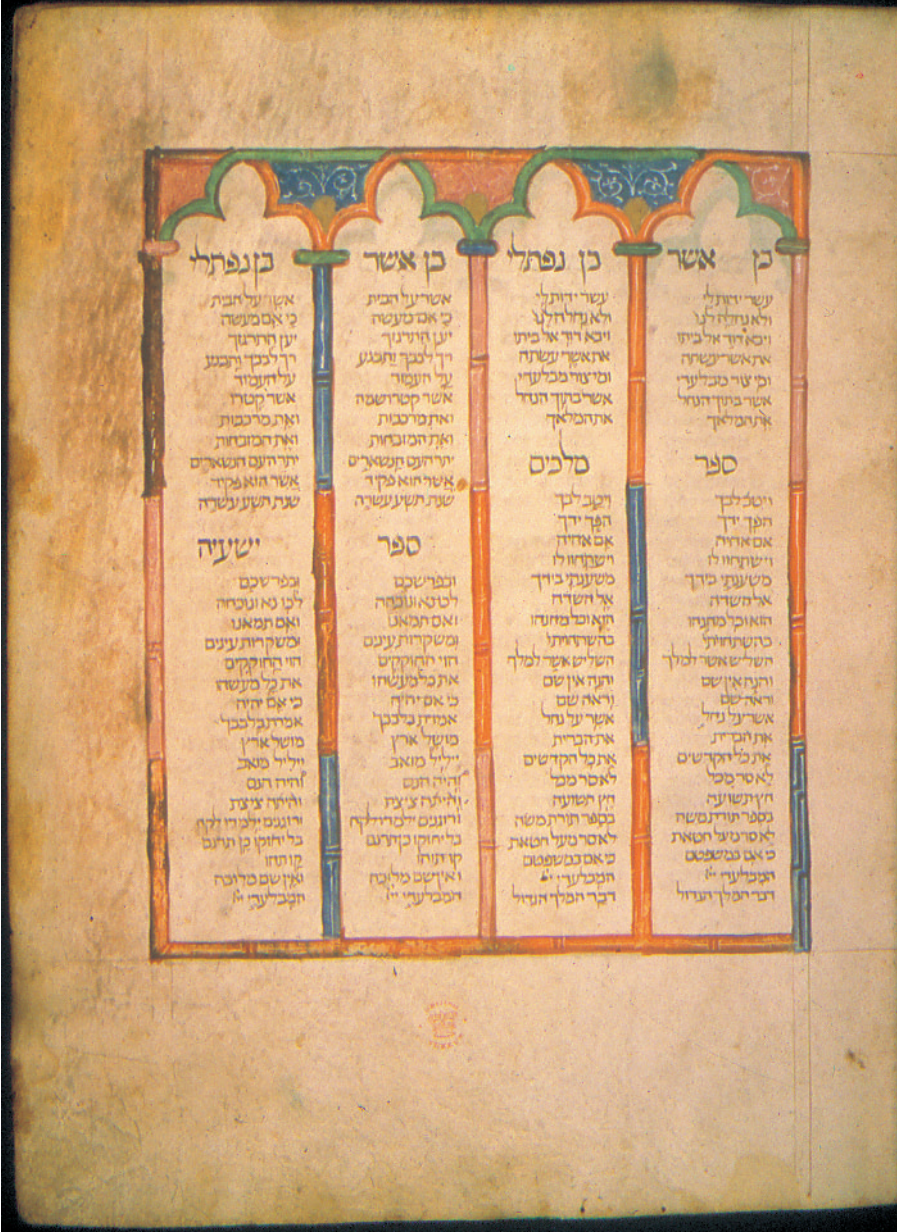 בן אשר
עשר ידות לי
ולא נחלה לנו
ויבא דוד אל ביתו
את אשר יעשה
ומי צור מבלעדי
אשר בתוך הנחל
את המלאך
ספר
ויטב לבך
הפך ידך
אם אחיה
וישתחוו לו
משענתי בידך
אל השדה
הוא וכל מחנהו
בהשתחויתי
השליש אשר למלך
והנה אין שם
וראה שם
אשר על נחל
את הברית
את כל הקדשים
לאסר מכל
חץ תשועה
בספר תורת משה
לאסר מעל חטאת
כי אם במשפטם
המבלעדי יי
דבר המלך הגדול
בן נפתלי
עשר ידות לי
ולא נחלה לנו
ויבא דוד אל ביתו
את אשר עשתה
ומי צור מבלעדי
אשר בתוך הנחל
את המלאך
מלכים
ויטב לבך
הפך ידך
אם אחיה
וישתחוו לו
משענתי בידך
אל השדה
הוא וכל מחנהו
בהשתחויתי
השליש אשר למלך
והנה אין שם
וראה שם
אשר על נחל
את הברית
את כל הקדשים
לאסר מכל
חץ תשועה
בספר תורת משה
לאסר מעל חטאת
כי אם במשפטם
המבלעדי יי
דבר המלך הגדול
בן אשר
אשר על הבית
כי אם מעשה
יען התרגזך
רך לבבך ותכנע
על העמוד
אשר קטרו שמה
ואת מרכבות
ואת המזבחות
יתר העם הנשארים
אשר הוא פקיד
שנת תשע עשרה
ספר
ובפרשכם
לכו נא ונוכחה
ואם תמאנו
ומשקרות עינים
הוי החוקקים
את כל מעשהו
כי אם יהיה
אמרת בלבבך
מושל ארץ
ייליל מואב
והיה הגם
והיתה ציצת
ורוגנים ילמדו לקח
בל יחזקו כן תרנם
קו תהו
ואין שם מלוכה
המבלעדי יי
בן נפתלי
אשר על הבית
כי אם מעשה
יען התרגזך
רך לבבך ותכנע
על העמוד
אשר קטרו
ואת מרכבות
ואת המזבחות
יתר העם הנשארים
אשר הוא פקיד
שנת תשע עשרה
ישעיה
ובפרשכם
לכו נא ונוכחה
ואם תמאנו
ומשקרות עינים
הוי החוקקים
את כל מעשהו
כי אם יהיה
אמרת בלבבך
מושל ארץ
ייליל מואב
והיה הגם
והיתה ציצת
ורוגנים ילמדו לקח
בל יחזקו כן תרנם
קו תהו
ואין שם מלוכה
המבלעדי יי